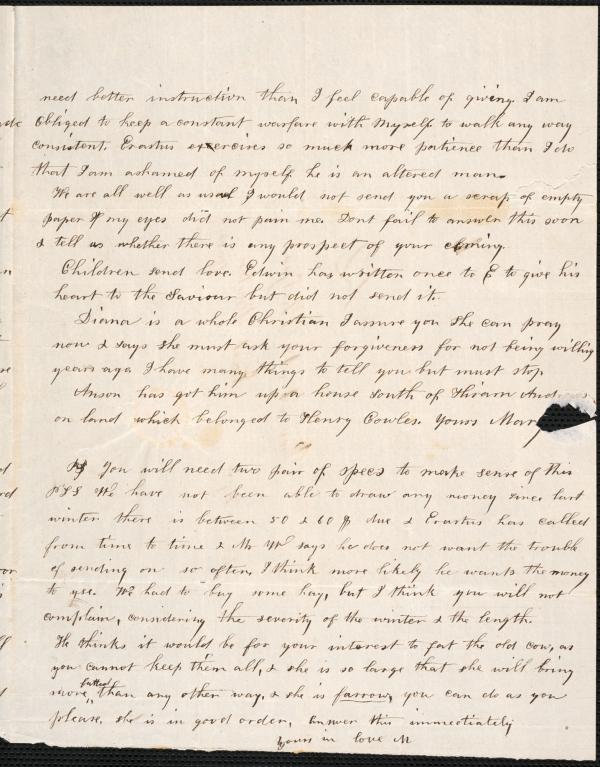 need better instruction than I feel capable of giving. I am
obliged to keep a constant warfare with myself to walk any way
consistent. Erastus exercises so much more patience than I do
that I am ashamed of myself he is an altered man.
We are all well as usual I would not send you a scrap of empty
paper if my eyes did not pain me. Dont fail to answer this soon
& tell us whether there is any prospect of your coming.
Children send love. Edwin has written once to E to give his
heart to the Saviour but did not send it.
Diana is a whole Christian I assure you she can pray
now & says she must ask your forgiveness for not being willing
years ago. I have many things to tell you but must stop
Anson has got him up a house south of Hiram
on land which belonged to Henry Cowles. Yours Mary
PS You will need two pair of specs to make sense of this
We have not been able to draw any money since last
winter there is between 50 & 60 $ due & Erastus has called
from time to time & Mr says he does not want the trouble
of sending on so often, I think more likely he wants the money
to use. We had to buy some hay, but I think you will not
complain, considering the severity of the winter & the length.
He thinks it would be for your interest to fat the old cow, as
you cannot keep them all, & she is so large that she will bring
more fatted than any other way, & she is farrow, you can do as you
please, she is in good order, answer this immediately
yours in love M